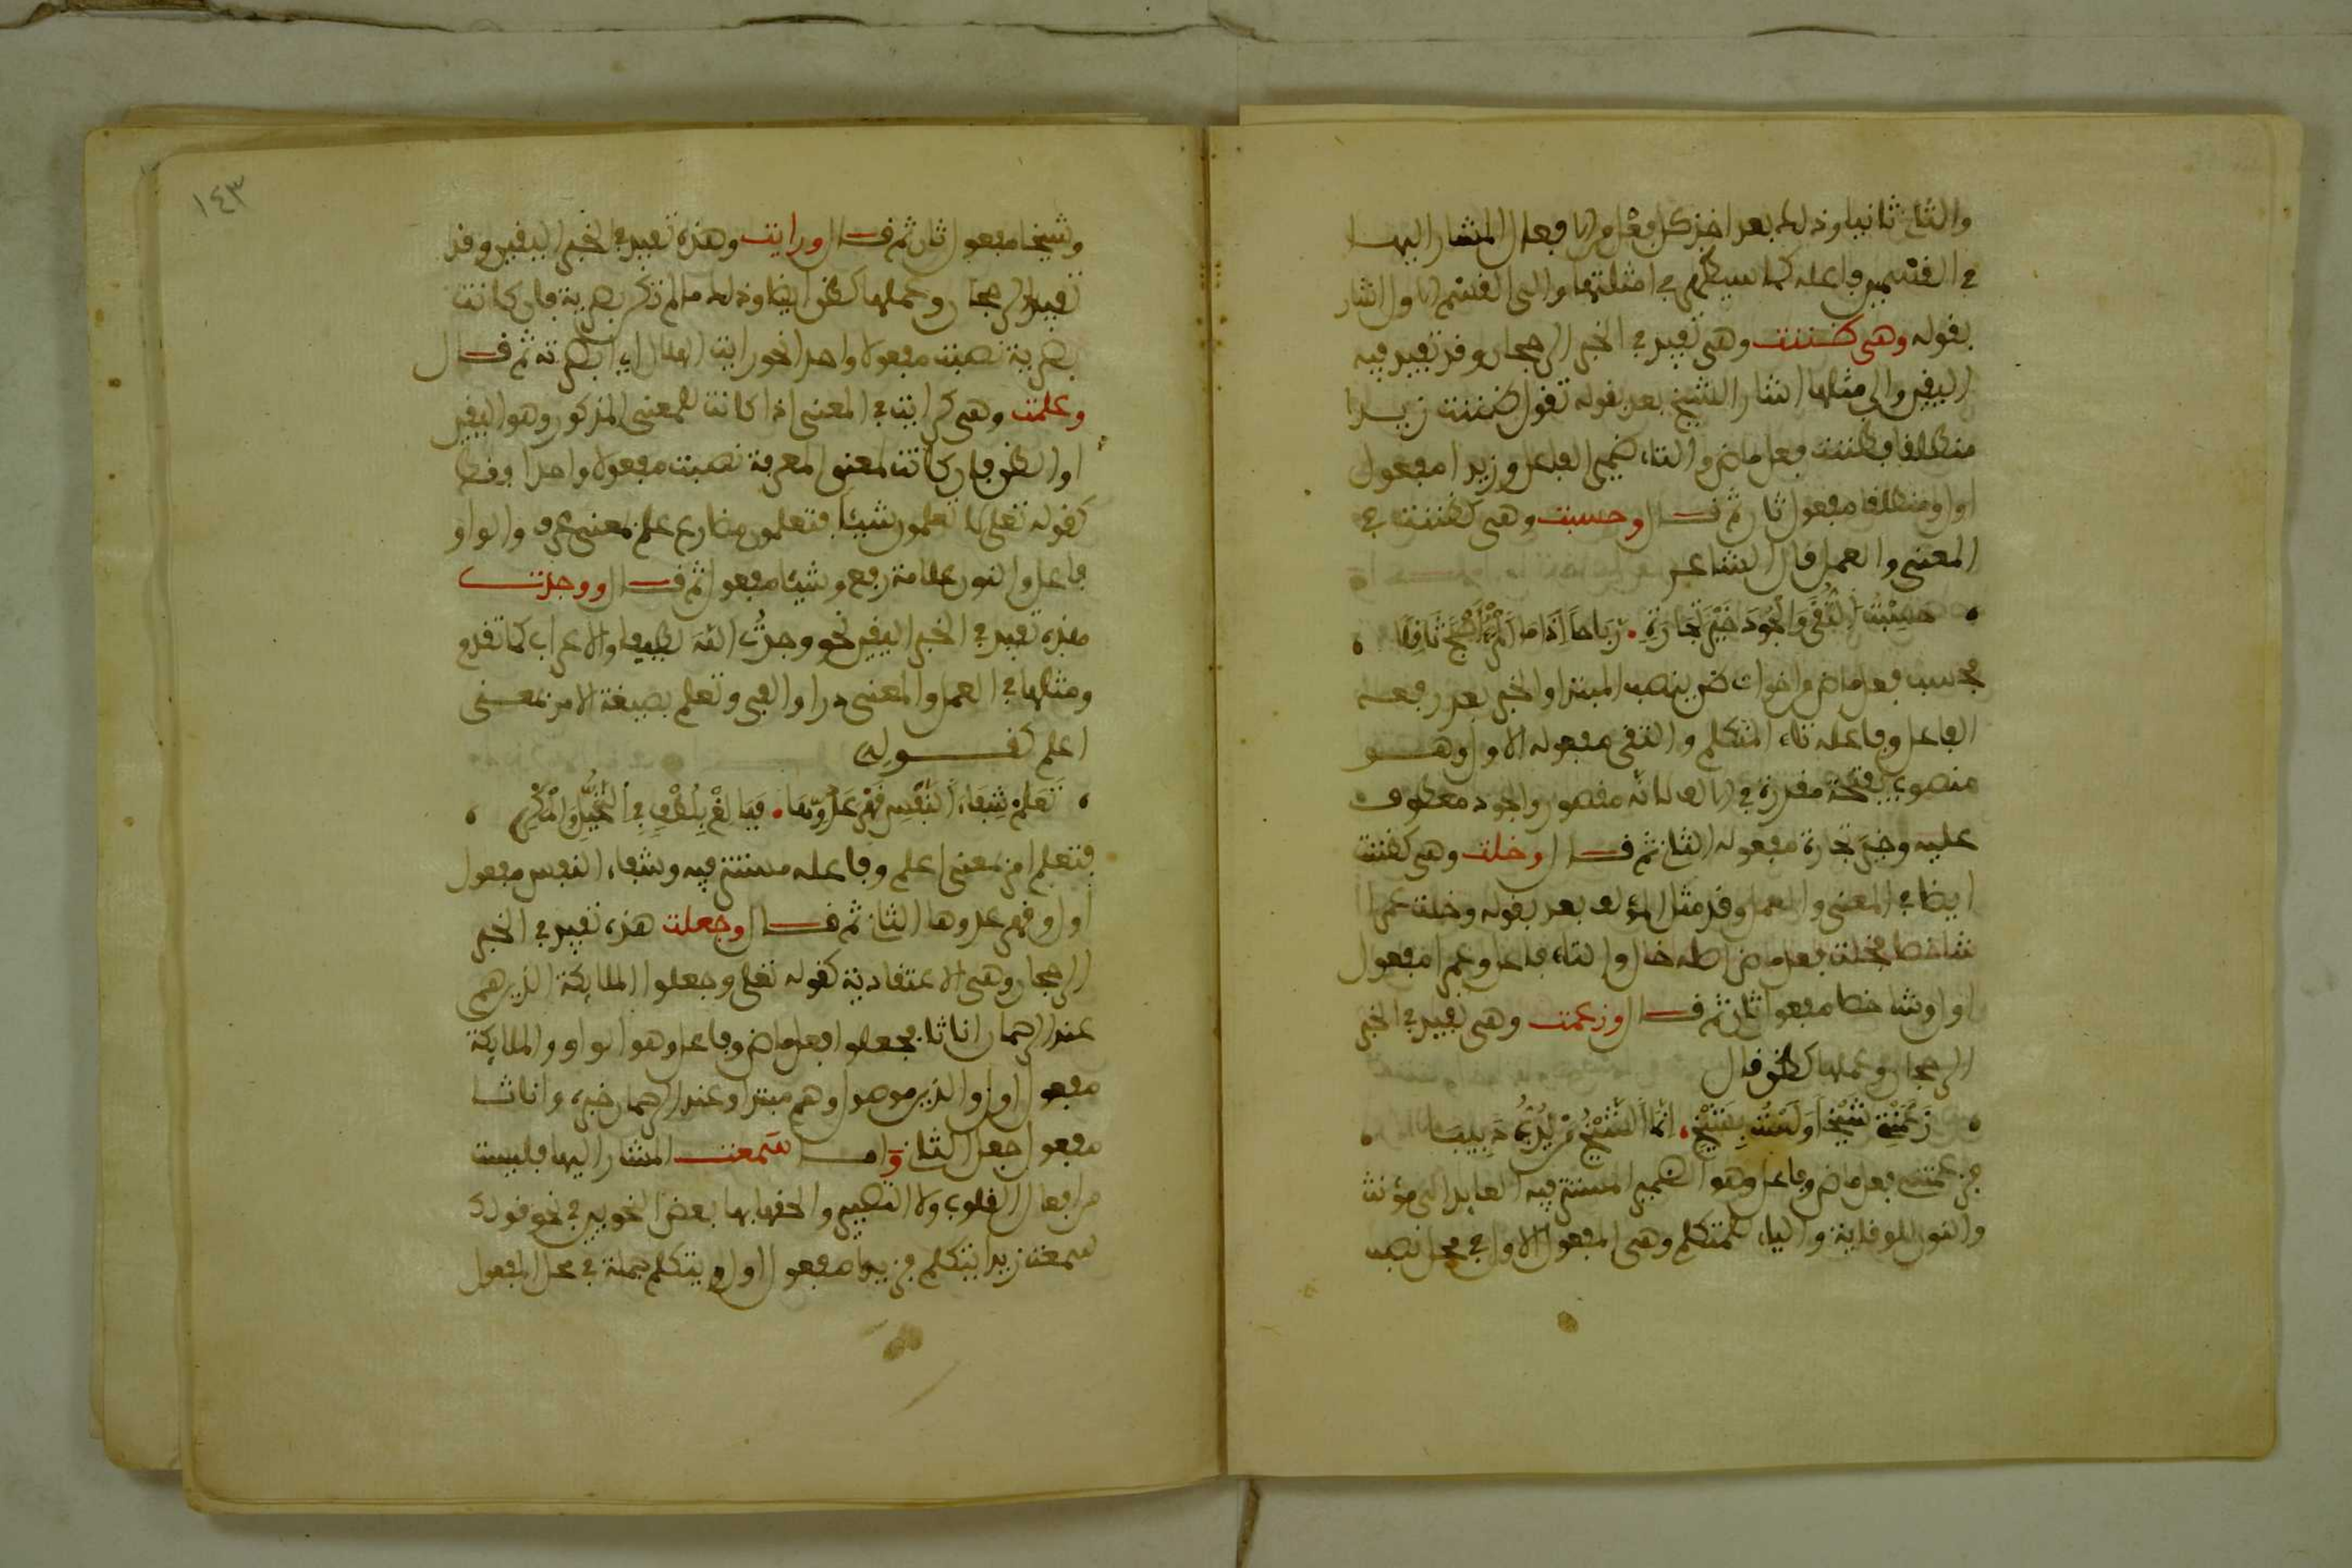 والثاني ثانيا وذلك بعد اخذ كل فعل من الافعال المشار اليها
في القسمين فاعله كما سيظهر في امثلتها والى القسم الاول اشار
بقوله وهي ظننت وهي تفيد في الخبر الرجحان وقد تفيد فيه
اليقين والى مثلها اشار الشيخ بعد بقوله تقول ظننت زيدا
منطلقا فظننت فعل ماض والتاء ضمير الفاعل وزيدا مفعول
اول ومنطلقا مفعول ثان ثم قال وحسبت وهي كظننت في
المعنى والعمل قال الشاعر
حَسِبْتُ التُّقَى وَالْجُودَ خَيْرَ تِجَارَةٍ . رَبَاحًا اِذَا مَا الْمَرْءُ اَصْبَحَ ثَاقِلَا
فحسب فعل ماض واخوات ظن ينصب المبتدا والخبر بعد رفعه
الفاعل وفاعله تاء المتكلم والتقى مفعوله الاول وهو
منصوب بفتحة مقدرة في الالف لانه مقصور والجود معطوف
عليه وخير تجارة مفعوله الثاني ثم قال وخلت وهي كظننت
ايضا في المعنى والعمل وقد مثل المؤلف بعد بقوله وخلت عمرا
شاخصا فخلت فعل ماض اصله خال والتاء فاعل وعمرا مفعول
اول وشاخصا مفعول ثان ثم قال وزعمت وهي تفيد في الخبر
الرجحان وعملها كظن قال
زَعَمَتْنِي شَيْخًا وَلَسْتُ بِشَيْخٍ . اِنَّمَا الشَّيْخُ مَنْ يَدِبُّ دَبِيبَا
فزعمتني فعل ماض وفاعل وهو الضمير المستتر فيه العايد الى مؤنث
والنون للوقاية والياء للمتكلم وهي المفعول الاول في محل نصب
١٤٣
وشيخا مفعول ثان ثم قال ورايت وهذه تفيد في الخبر اليقين وقد
تفيد الرجحان وعملها كظن ايضا وذلك ما لم تكن بصرية فان كانت
بصرية نصبت مفعولا واحدا نحو رايت الهلال اي ابصرته ثم قال
وعلمت وهي كرايت في المعنى اذا كانت للمعنى المذكور وهو اليقين
او الظن فان كانت لمعنى المعرفة نصبت مفعولا واحدا فقط
كقوله تعلى لا تعلمون شيئا فتعلمون مضارع علم بمعنى عرف والواو
فاعل والنون علامة رفع وشيئا مفعول ثم قال ووجدت
هذه تفيد في الخبر اليقين نحو وجدْتُ اللهَ لطيفا والاعراب كما تقدم
ومثلها في العمل والمعنى درا والفى وتعلم بصيغة الامر بمعنى
اعلم كقوله
تَعَلَّمْ شِفَاءَ النَّفْسِ قَهْرَ عَدُوِّهَا . فَبَالِغْ بِلُطْفٍ فِي التَّحَيُّلِ وَالْمَكْرِ
فتعلم امر بمعنى اعلم وفاعله مستتر فيه وشفاء النفس مفعول
اول وقهر عدوها الثاني ثم قال وجعلت هذه تفيد في الخبر
الرجحان وهي الاعتقادية كقوله تعلى وجعلوا الملايكة الذين هم
عند الرحمان اناثا فجعلوا فعل ماض وفاعل وهو الواو والملايكة
مفعول اول والذين موصول وهم مبتدا وعند الرحمان خبره واناثا
مفعول جعل الثاني واما سمعت المشار اليها فليست
من افعال القلوب ولا التصيير والحقها بها بعض النحويين في نحو قولك
سمعت زيدا يتكلم فزيدا مفعول اول ويتكلم جملة في محل المفعول